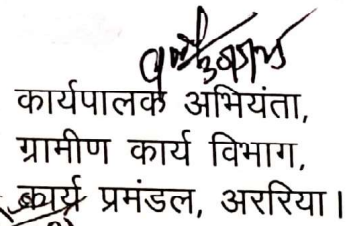 कार्यपालक अभियंता,
ग्रामीण कार्य विभाग,
कार्य प्रमंडल, अररिया।